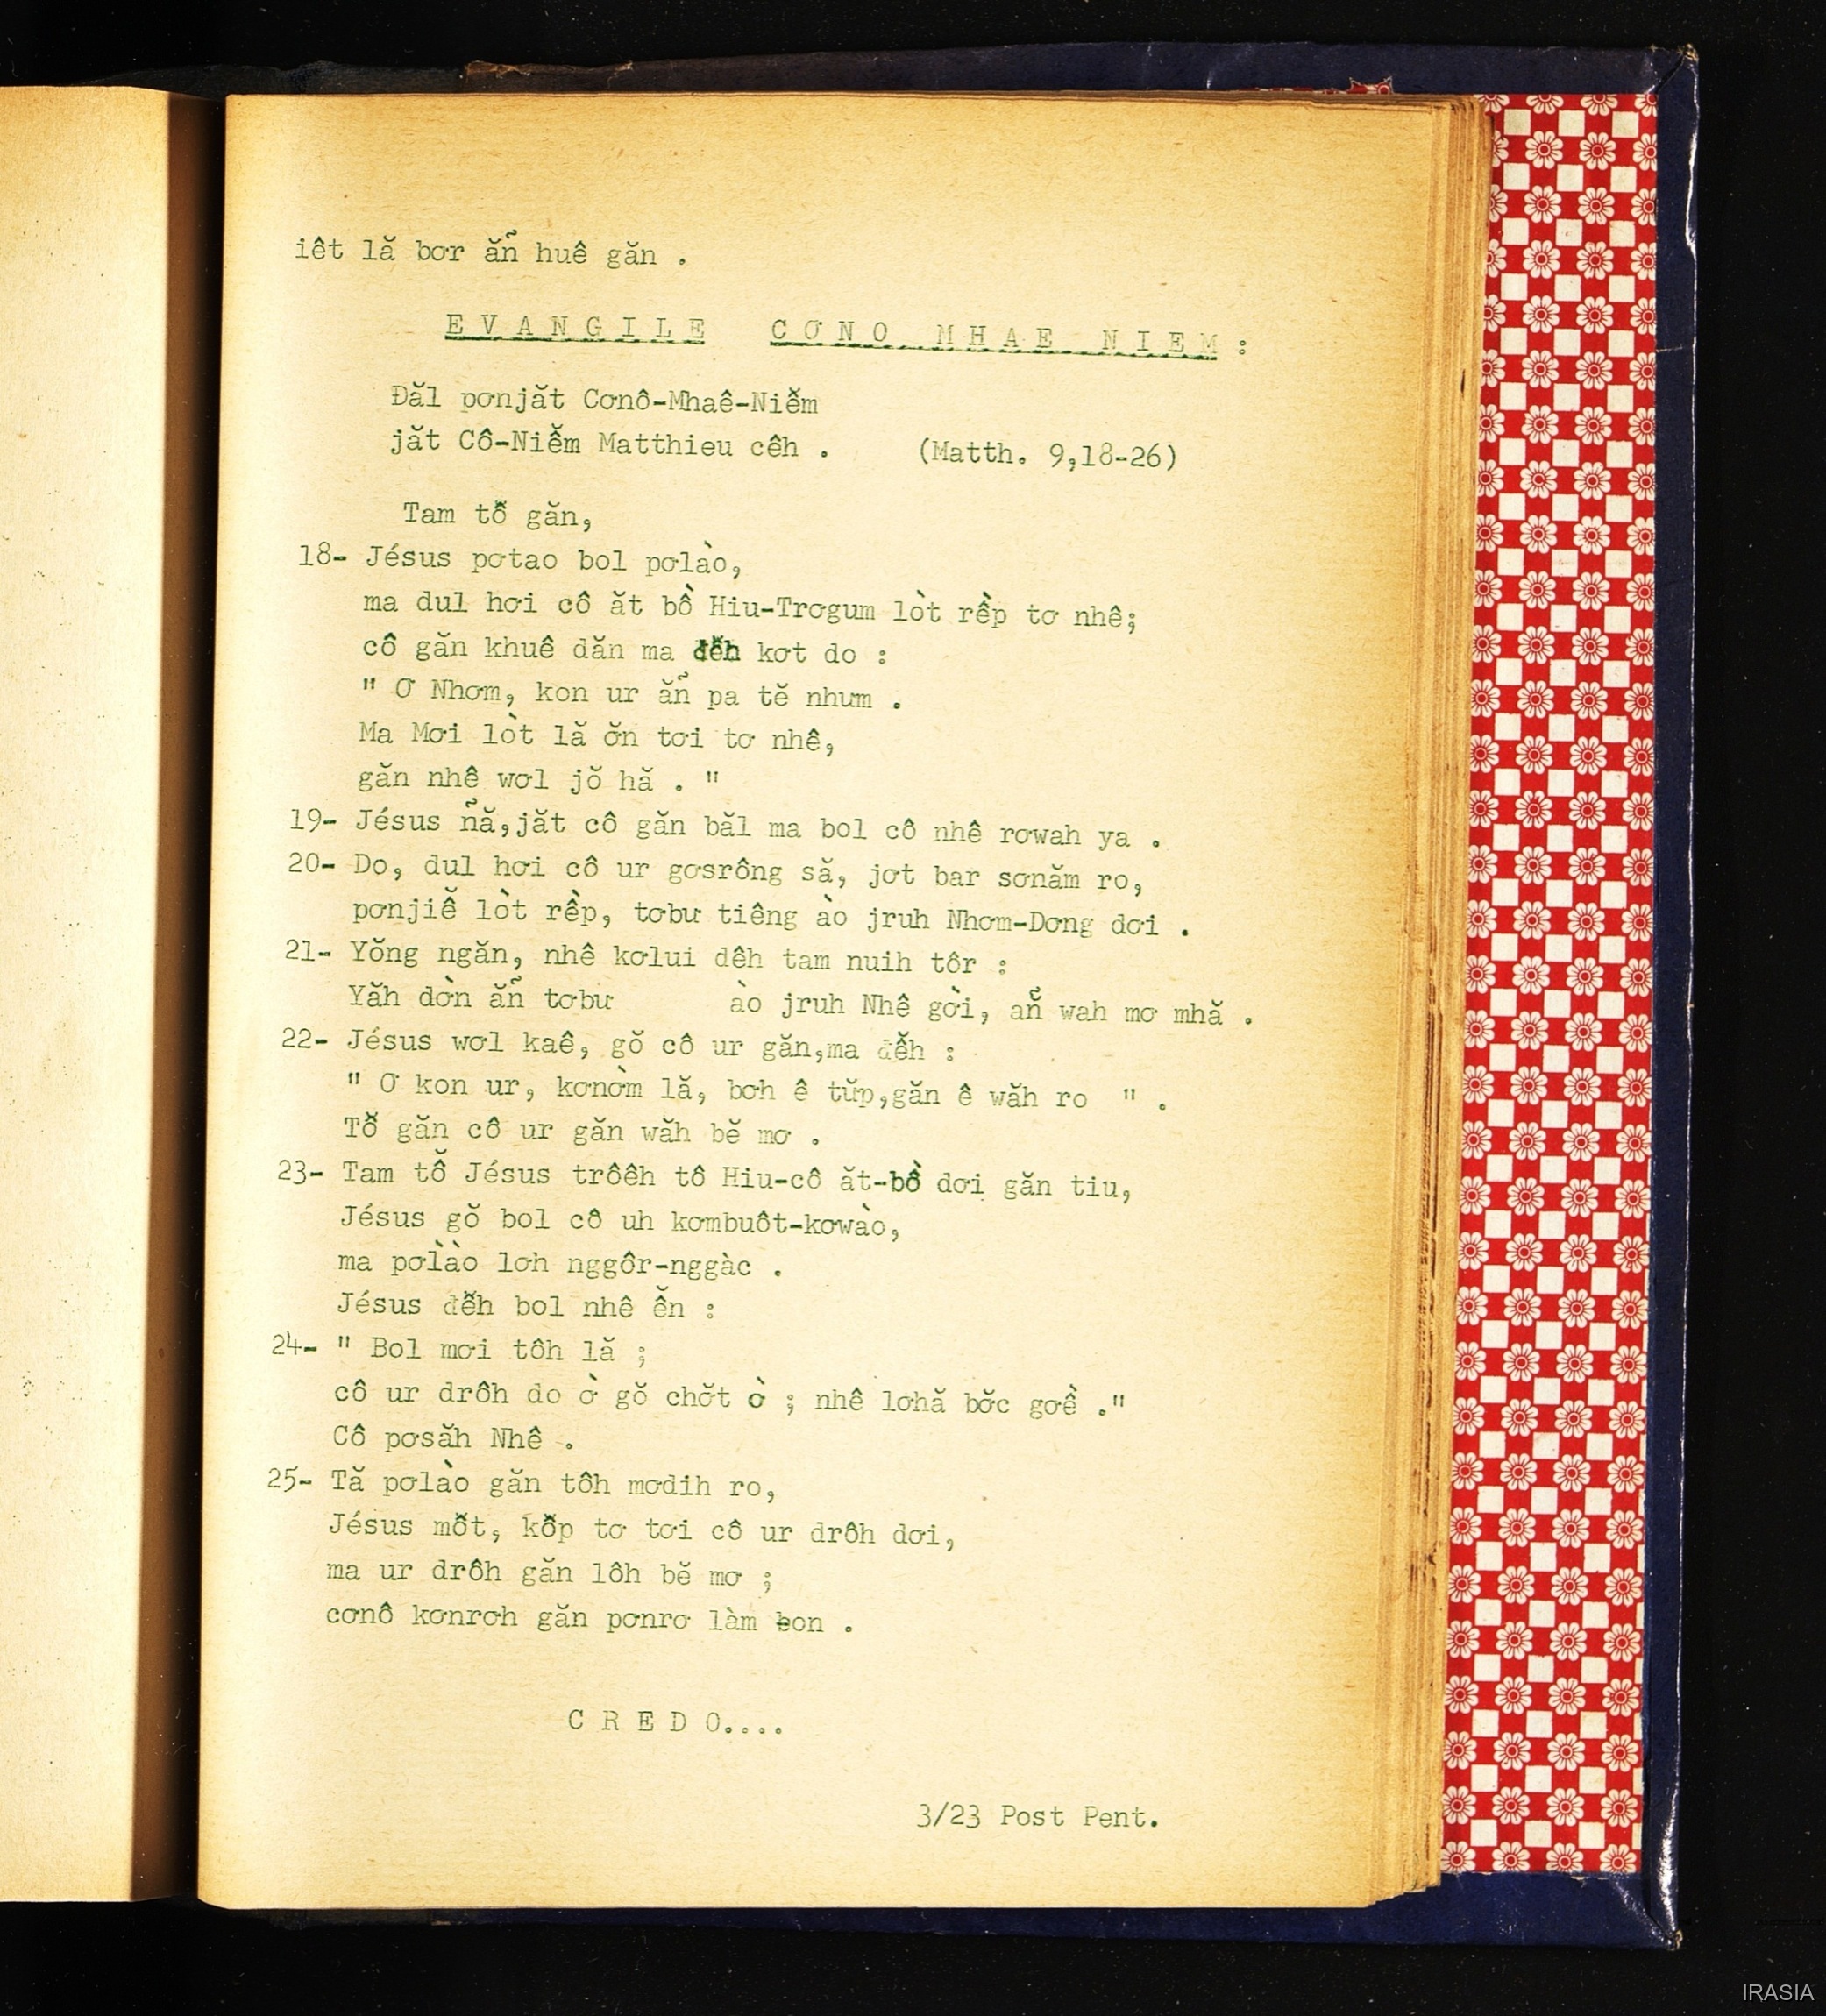 iêt lă bơr ăñ huê găn .
E V A N G I L E   C Ơ N O   M H A E   N I E M :
Đăl pơnjăt Cơnô-Mhaê-Niê̆m
jăt Cô-Niê̆m Matthieu cêh . (Matth. 9,18-26)
Tam tô̆ găn,
18- Jésus pơtao bol pơlào,
ma dul hơi cô ăt bồ Hiu-Trơgum lòt rềp tơ nhê;
cô găn khuê dăn ma đê̆h kơt do :
" Ơ Nhơm, kon ur ăñ pa tĕ nhưm .
Ma Mơi lòt lă ơ̆n tơi tơ nhê,
găn nhê wơl jŏ hă . "
19- Jésus ñă,jăt cô găn băl ma bol cô nhê rơwah ya .
20- Do, dul hơi cô ur gơsrông să, jơt bar sơnăm ro,
pơnjiê̆ lòt rềp, tơbư tiêng ào jruh Nhơm-Dơng dơi .
21- Yŏng ngăn, nhê kơlui dêh tam nuih tôr :
Yăh dờn ăñ tơbư ào jruh Nhê gời, ăñ wah mơ mhă .
22- Jésus wơl kaê, gŏ cô ur găn,ma đê̆h :
" Ơ kon ur, kơnờm lă, bơh ê tŭp,găn ê wăh ro " .
Tô̆ găn cô ur găn wăh bĕ mơ .
23- Tam tô̆ Jésus trôêh tô Hiu-cô ăt-bồ dơi găn tiu,
Jésus gŏ bol cô uh kơmbuôt-kơwào,
ma pơlào lơh nggôr-nggàc .
Jésus đê̆h bol nhê ê̆n :
24- " Bol mơi tôh lă ;
cô ur drôh do ờ gŏ chơ̆t ờ ; nhê lơhă bơ̆c gơề ."
Cô pơsăh Nhê .
25- Tă pơlào găn tôh mơdih ro,
Jésus mô̆t, kô̆p tơ tơi cô ur drôh dơi,
ma ur drôh găn lôh bĕ mơ ;
cơnô kơnrơh găn pơnrơ làm bon .
C R E D O....
3/23 Post Pent.
IRASIA